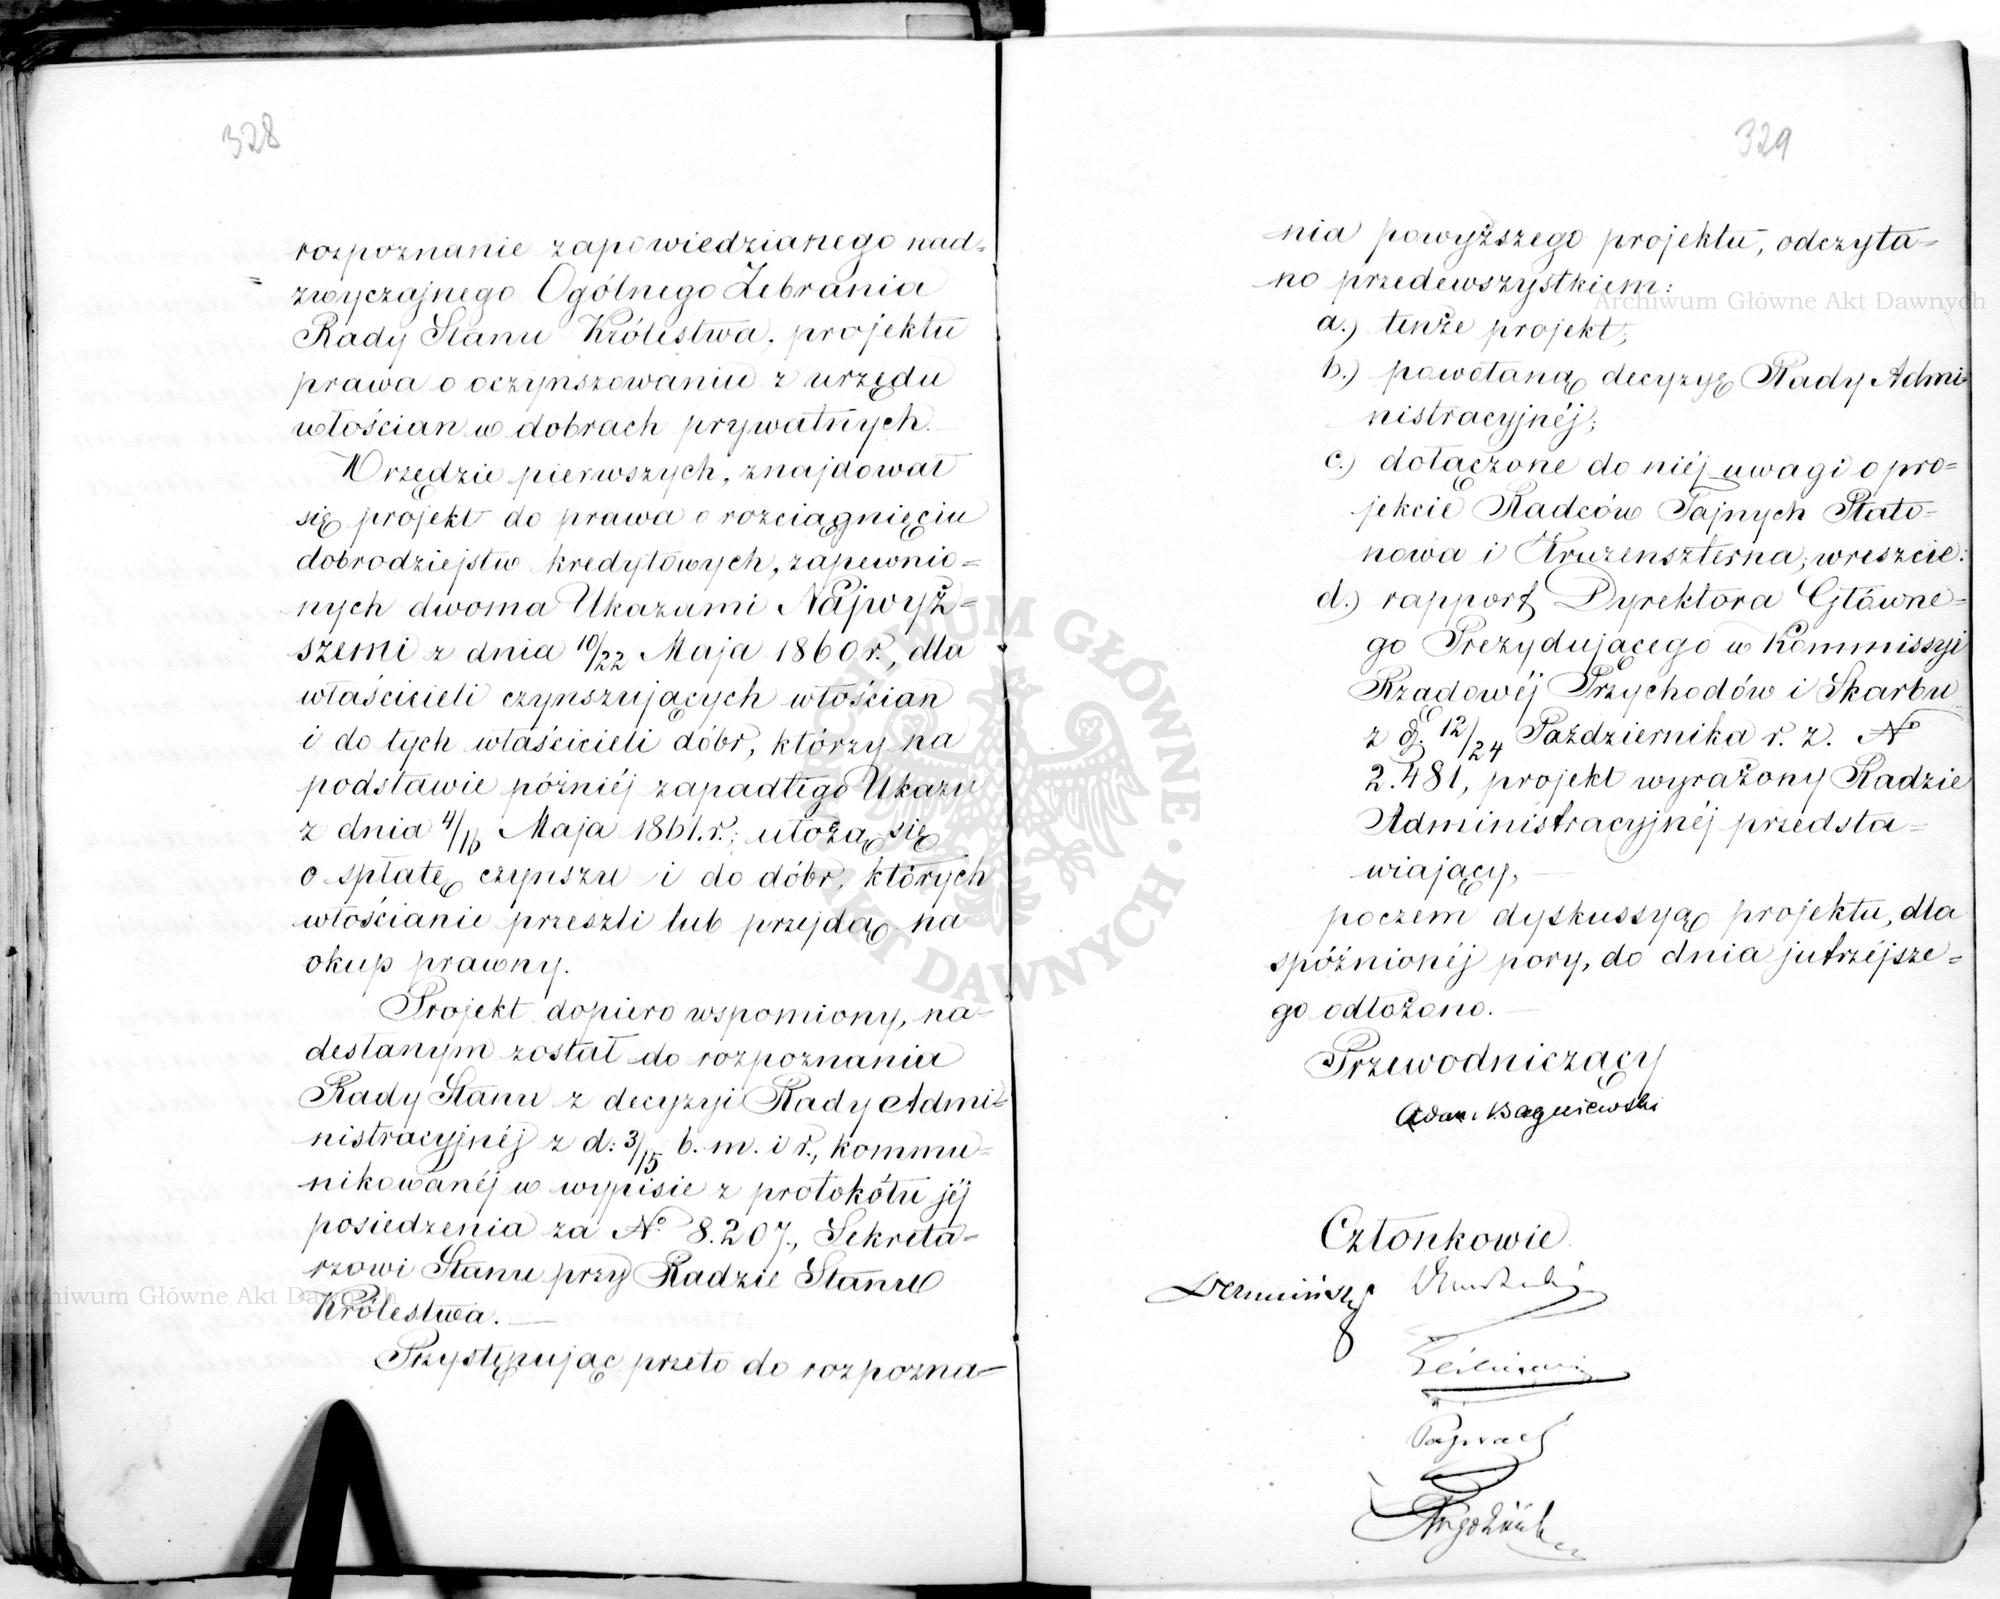 328
rozpoznanie zapowiedzianego nad=
zwyczajnego Ogólnego Zebrania
Rady Stanu Królestwa, projektu
prawa o oczynszowaniu z urzędu
włościan w dobrach prywatnych.
W rzędzie pierwszych, znajdował
się projekt do prawa o rozciągnięciu
dobrodziejstw kredytowych, zapewnio=
nych dwoma Ukazami Najwyż=
szemi z dnia 10/22 Maja 1860 r., dla
właścicieli czynszujących włościan
i do tych właścicieli dóbr, którzy na
podstawie późniéj zapadłego Ukazu
z dnia 4/16 Maja 1861. r.; ułożą się
o spłatę czynszu i do dóbr, których
włościanie przeszli lub przejdą na
okup prawny.
Projekt dopiero wspomiony, na=
desłanym został do rozpoznania
Rady Stanu z decyzyi Rady Admi=
nistracyjnéj z d: 3/15 b. m. i r., kommu=
nikowanéj w wypisie z protokółu jéj
posiedzenia za No 8.207., Sekreta=
rzowi Stanu przy Radzie Stanu
Królestwa.
Przystępując przeto do rozpozna=
329
nia powyższego projektu, odczyta=
no przedewszystkiem:
a.) tenże projekt;
b.) powołaną decyzyę Rady Admi=
nistracyjnéj;
c.) dołączone do niéj uwagi o pro=
jekcie Radców Tajnych Płato=
nowa i Kruzenszterna; wreszcie:
d.) rapport Dyrektora Główne=
go Prezydującego w Kommissyi
Rządowéj Przychodów i Skarbu
z d. 12/24 Października r. z. No
2.481, projekt wyrażony Radzie
Administracyjnéj przedsta=
wiający,
poczem dyskussyą projektu, dla
spóźnionéj pory, do dnia jutrzéjsze=
go odłożono.
Przewodniczący
Adam Bagniewski
Członkowie
Archiwum Główne Akt Dawnych
Archiwum Główne Akt Dawnych
ARCHIWUM GŁÓWNE AKT DAWNYCH